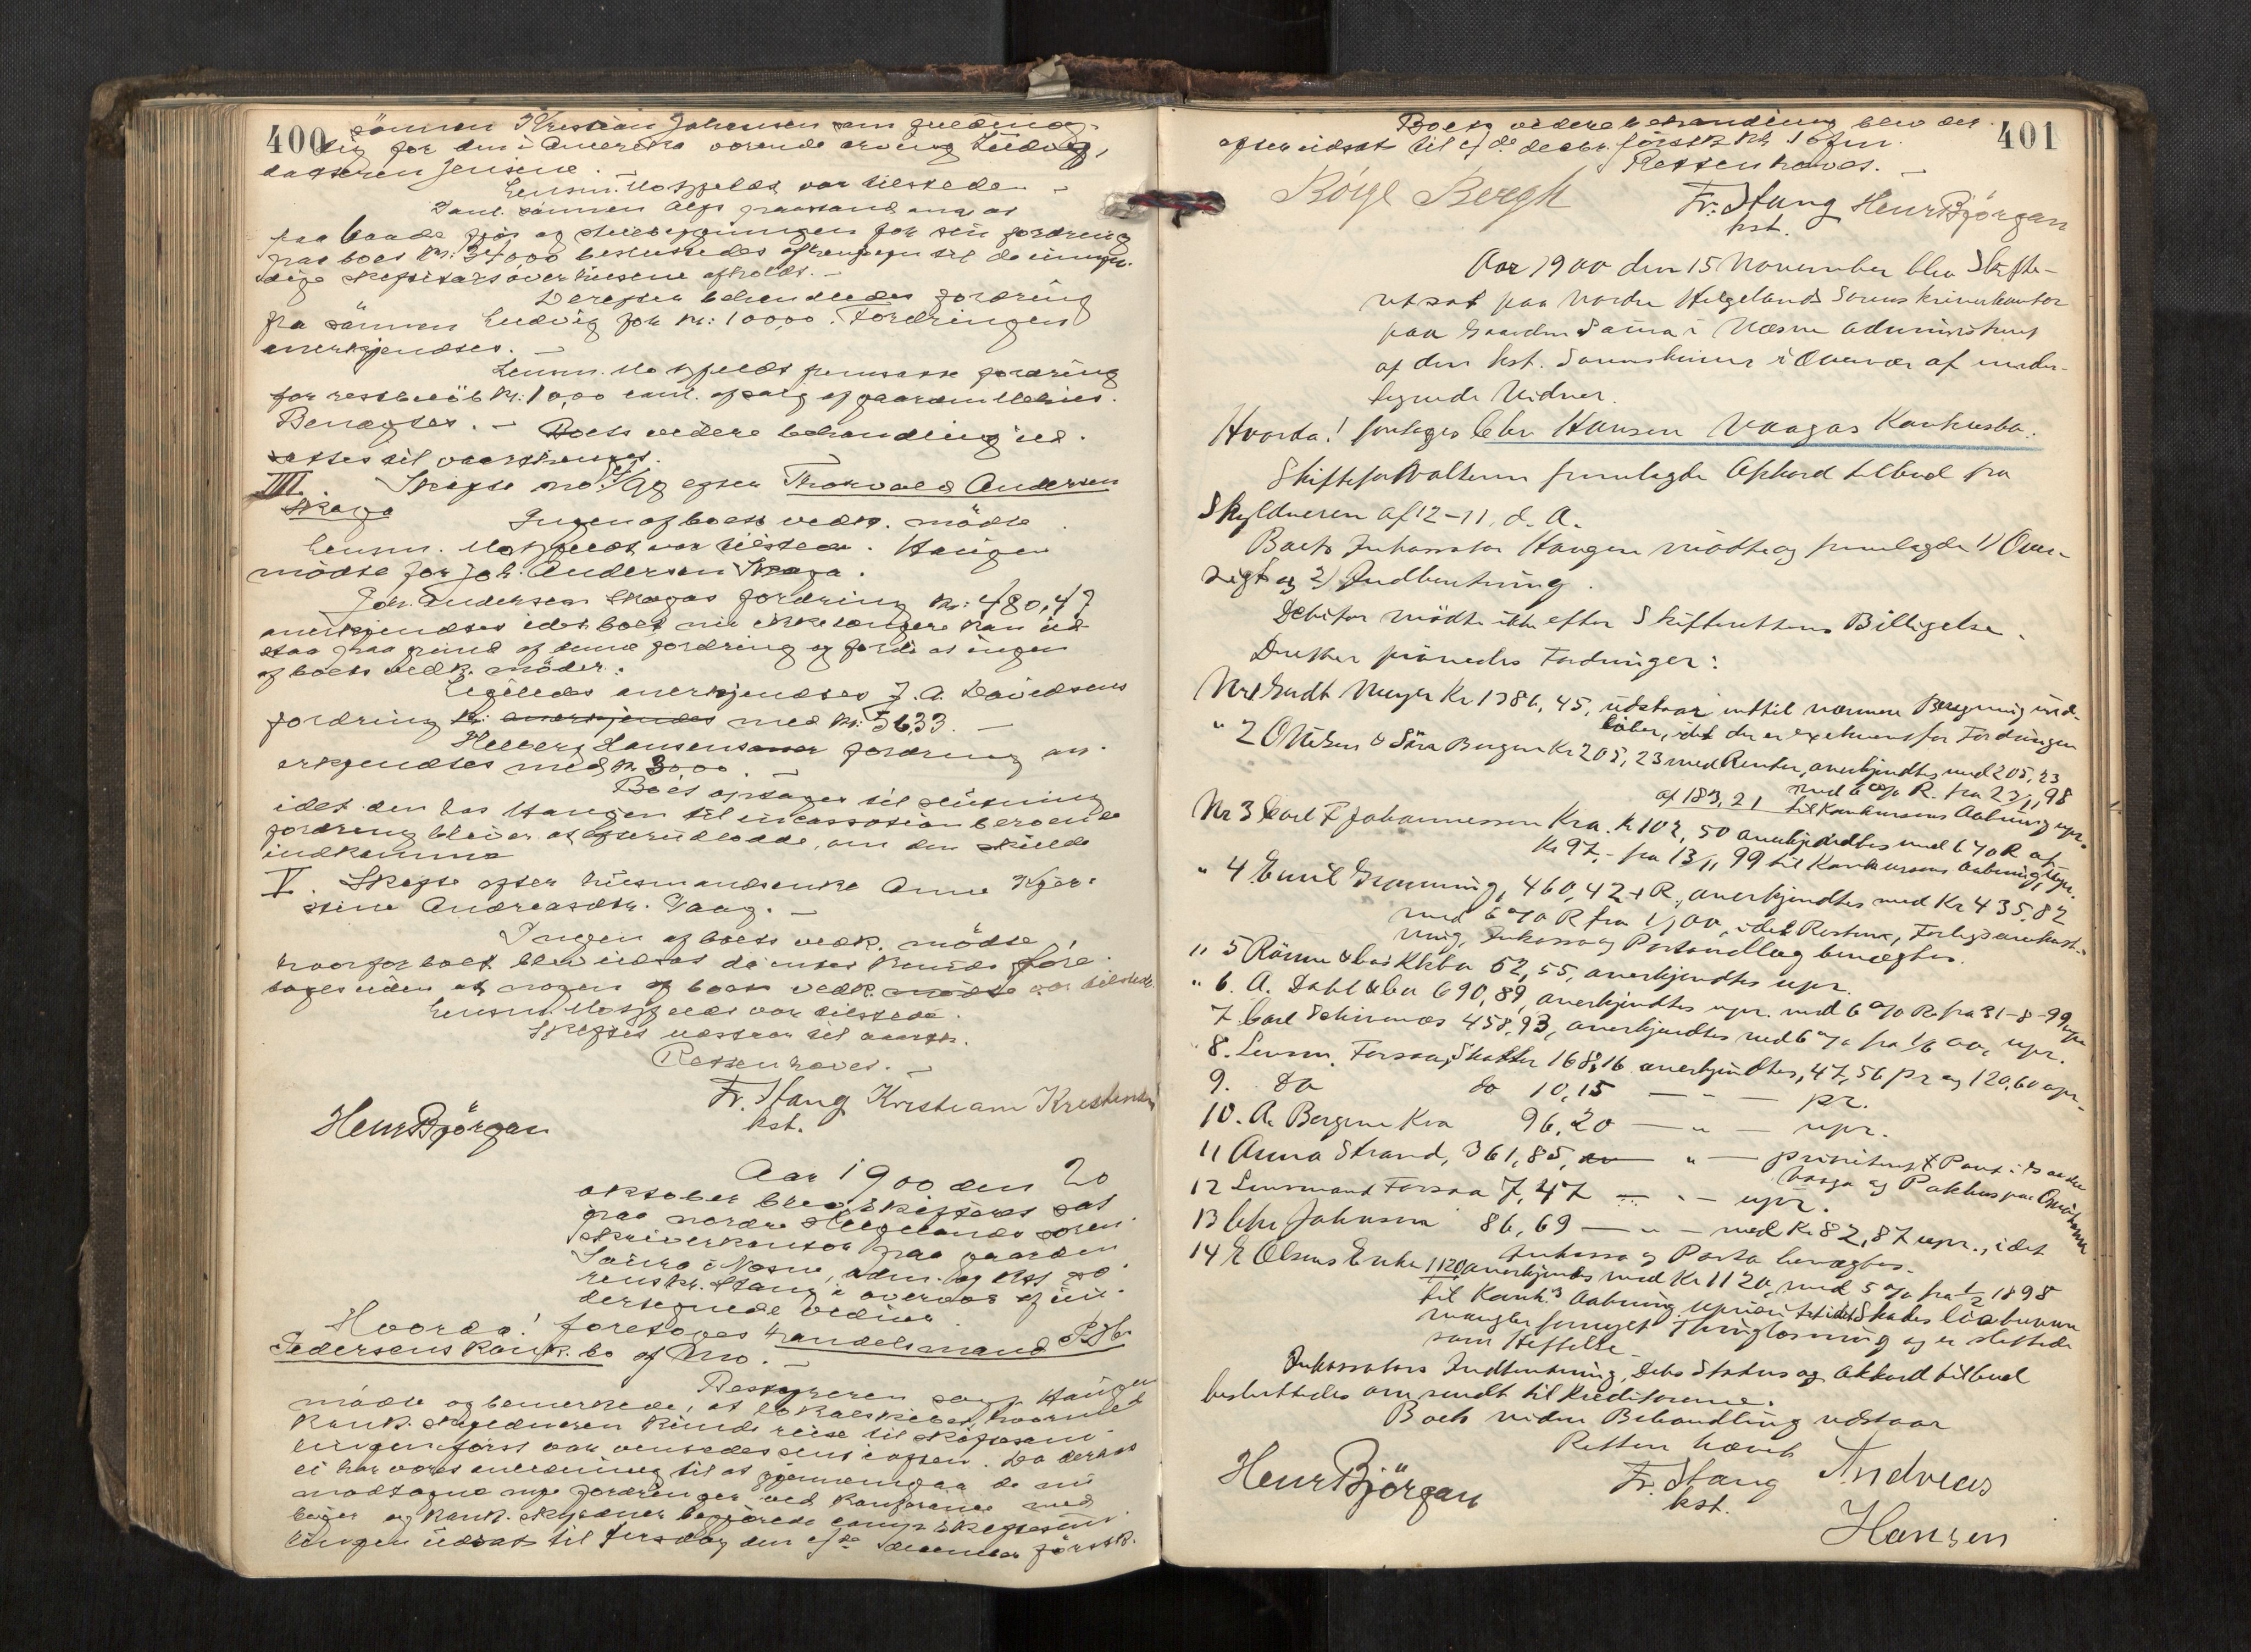 400
sönnen Kristian Johansen som
sig for den i Amerika vorende arving Ludvig,
datteren Jensine.
Lensm. Mosfjeldt var tilstede.
sönnen
paa baade og for sin fordring
paa boet kr: besluttedes
afholdt.
Derefter behandledes fordring
fra sönnen Ludvig for kr: 100,00. Fordringen
anerkjendtes.
Lensm. Mosfjeldt fremsatte fordring
for restbelöb kr: 10,00 af salg af gaarden
Benægtes. Boets videre behandling ud-
sattes til
III. Skifte no: efter Thorvald Andersen
Skaga
Ingen af boets vedk. mödte.
Lensm. Mosfjeldt var tilstede. Haugen
mödte for Joh. Andersen Skaga.
Joh. Andersen Skagas fordring kr: 480,47
anerkjendtes idet boet nu ikke længere kan ud-
staa paa grund af denne fordring og fordi at ingen
af boets vedk. möder.
Ligeledes anerkjendtes J. A. Davidsens
fordring kr: anerkjendes med kr: 56,33.
Helberg Hansens fordring an-
erkjendtes med kr 30,00.
Boet optages til slutning
idet den hos Haugen til incassation beroende
fordring bliver at efterudlodde, om den skulde
indkomme
V. Skifte efter huusmandsenke Anne Kjer-
stine Andreasdtr.
Ingen af boets vedk. mödte
hvorfor boet blev udsat da intet kunde fore-
tages uden at nogen af boets vedk. mödte var tilstede.
Lensm. Mosfjeldt var tilstede.
Skiftet udstaar til
Retten hævet.
Fr. Stang Kristian Kristensen
kst.
Henr Björgan
Aar 1900 den 20
oktober blev skifteret sat
paa nordre Helgelands soren-
skriverkontor paa gaarden
Saura i Nesne, adm. af kst. so-
renskr. Stang i overvær af un-
dertegnede vidner.
Hvorda! foretoges handelsmand
Pedersens konk. bo af Mo.
Bestyreren Haugen
mödte og bemerkede, at lokalskibet, hvormed
konk. skyldneren kunde reise til skiftesam-
lingen först var ventendes sent i aften. Da derhos
ei har været anledning til at gjennemgaa de nu
modtagne nye fordringer ved konferance med
böger og konk. skyldner begjærede skiftesam-
lingen udsat til tirsdag den 4de december förstk.
401
Boets videre behandling blev der-
efter udsat til 4de decbr. förstk kl. 10 fm.
Retten hævet.
Börge Bergh
Fr. Stang Henr Björgan
kst.
Aar 1900 den 15 November blev Skifte-
ret sat paa Nordre Helgelands Sorenskriverkontor
paa Gaarden Saura i Næsne administreret
af den kst. Sorenskriver i Overvær af under-
tegnede Vidner.
Hvorda! foretoges Chr Hansen Vaagas Konkursbo.
Skifteforvalteren fremlagde Akkordtilbud fra
Skyldneren af 12-11. d. A.
Boets Inkassator Haugen mödte og fremlagde 1) Over-
sigt og 2) Indberetning.
Debitor mödte ikke efter Skifterettens Billigelse.
Derefter prövedes Fordringer:
Nr 1 Gerdt Meyer Kr 1386,45, udstaar indtil nærmere Beregning ind-
löber, idet der er exekveret for Fordringen
" 2 O Nilsen & Sön Bergen Kr 205,23 med Renter, anerkjendtes med 205,23
med 6 % R. fra 23/1, 98
af 183,21 til Konkursens Aabning upr.
Nr 3 Carl F Johannessen Kra. kr 102,50 anerkjendtes med 6 % R af
Kr 97,- fra 13/11 99 til Konkursens Aabning, upr.
" 4 Emil Gramming, 460,42 + R., anerkjendtes med Kr 435,82
med 6 % R fra 1/1 00, idet Restene, Forligsanekost-
ning, Inkasso og Portoudlæg benægtes.
" 5 Rönne & Co's Kkbo 52,55, anerkjendtes upr.
" 6. A. Dahl & Co 690,89, anerkjendtes upr. med 6 % R. fra 31-8-99 upr
7 Carl Schirmes 458,93, anerkjendtes med 6 % fra 1/6 00. upr.
8. Lensm. Forsaa, Skatter 168,16 anerkjendtes, 47,56 pr og 120,60 upr.
9. Do do 10,15 — " — pr.
10. A. Bergene Kra 96,20 — " — upr.
11 Anna Strand, 361,85, — " — prioritert Pant i Gaarden
Vaaga og Pakhus paa
12 Lensmand Forsaa 7,47 — " — upr.
13 Chr Johnsen 86,69 — " — med Kr 82,87 upr., idet
Inkasso og Porto benægtes.
14 E Olsens Enke 1120 anerkjendtes med Kr 1120, med 5 % fra 1/2 1898
til Konk.s Aabning. idet Skadeslösbrevene
mangler fornyet Thinglæsning og er slettede
som Heftelse
Inkassators Indberetning, Debs Status og Akkordtilbud
besluttedes omsendt til Kreditorerne.
Boets videre Behandling udstaar
Retten hævet
Henr Björgan
Fr. Stang
kst.
Andreas
Hansen